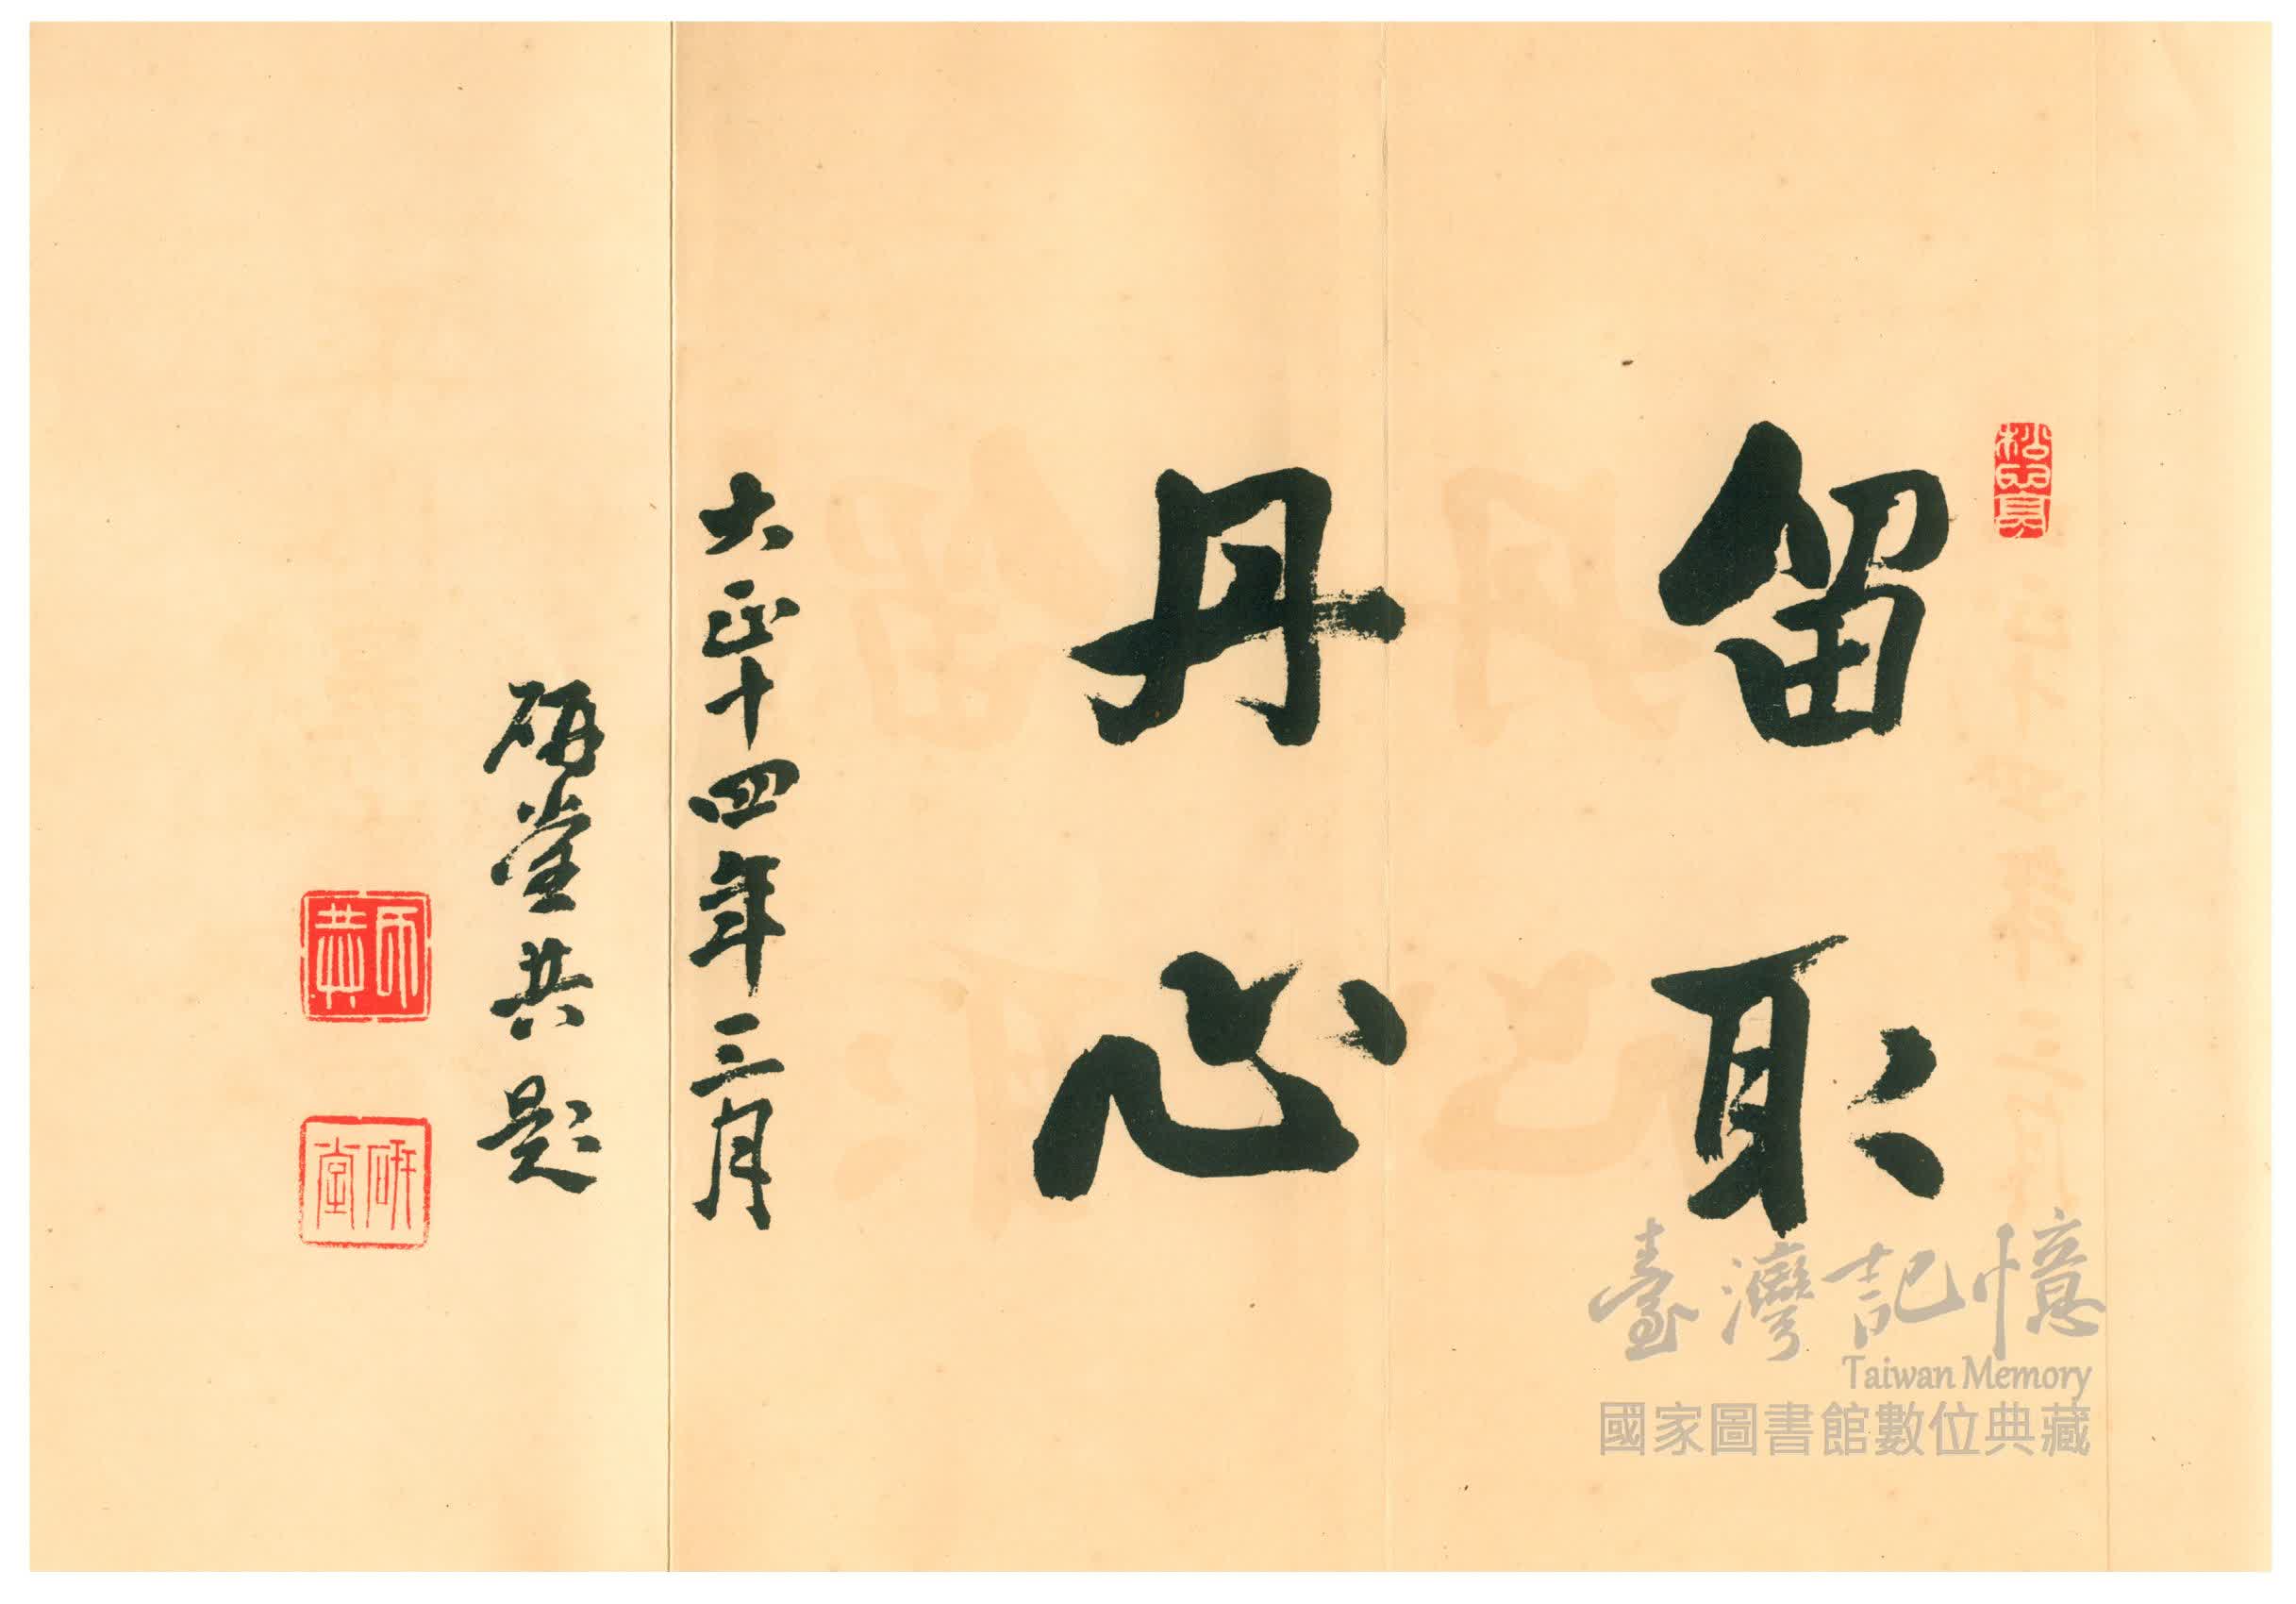 留取
丹心
大正十四年三月
研堂共題
研堂
臺灣記憶
Taiwan Memory
國家圖書館數位典藏